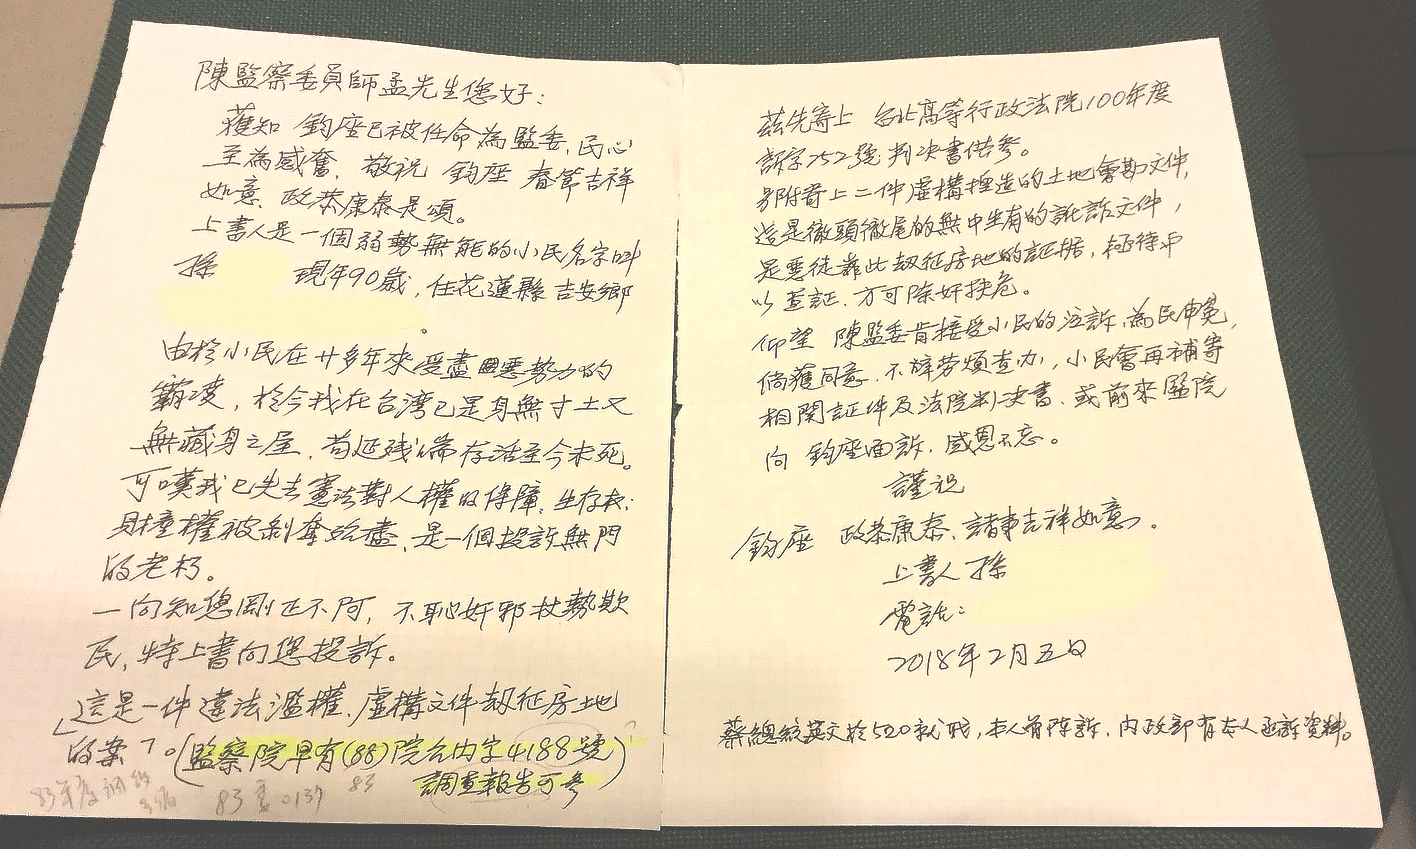 陳監察委員師孟先生您好：
獲知 鈞座已被任命為監委，民心
至為感奮，敬祝 鈞座 春節吉祥
如意、政恭康泰是頌。
上書人是一個弱勢無能的小民名字叫
孫 現年90歲，住花蓮縣吉安鄉
。
由於小民在廿多年來受盡惡勢力的
霸凌，於今我在台湾已是身無寸土又
無藏身之屋，苟延残喘存活至今未死。
可嘆我已失去憲法對人權的保障、生存权、
財產權被剝奪殆盡，是一個投訴無門
的老朽。
一向知您剛正不阿，不恥奸邪杖勢欺
民，特上書向您投訴。
這是一件違法濫權、虛構文件刼征房地
的案子。(監察院早有(88)院台內字4188號
調查報告可參)
83年度
83 0137 83
茲先寄上 台北高等行政法院100年度
訴字252號判决書供參。
另附寄上二件虛構捏造的土地會勘文件，
這是徹頭徹尾的無中生有的訛詐文件，
是惡徒靠此刼征房地的証据，極待予
以查証、方可除奸扶危。
仰望 陳監委肯接受小民的泣訴，為民申冤，
倘獲同意，不辞劳煩查办，小民會再補寄
相関証件及法院判决書，或前來監院
向 鈞座面訴，感恩不忘。
謹祝
鈞座 政恭康泰、諸事吉祥如意。
上書人 孫
電話：
2018年2月五日
蔡總統英文於520就职，本人曾陳訴，內政部有本人函訴資料。